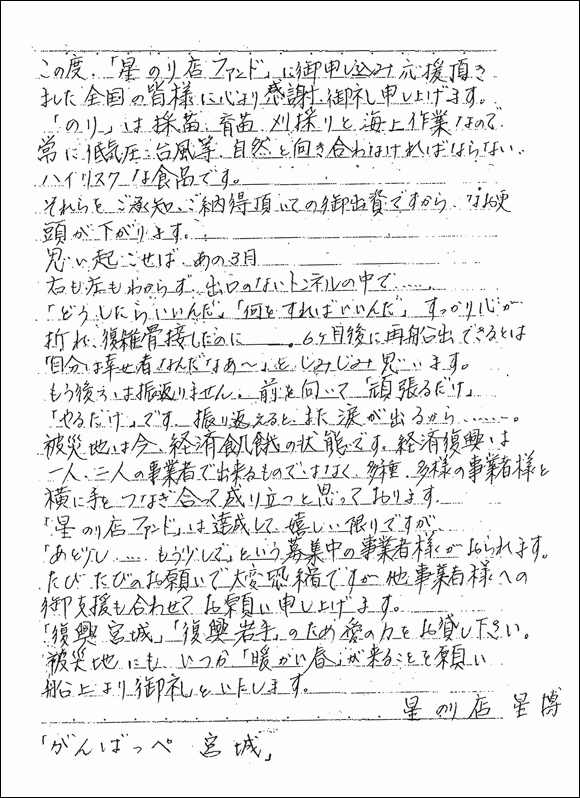 この度、「星のり店ファンド」に御申し込み応援頂き
ました全国の皆様に心より感謝、御礼申し上げます。
「のり」は採苗、育苗、刈採りと海上作業なので
常に低気圧、台風等、自然と向き合わなければならない、
ハイリスクな食品です。
それらをご承知、ご納得頂いての御出資ですから、なお更
頭が下がります。
思い起こせば、あの3月
右も左もわからず、出口のないトンネルの中で……、
「どうしたらいいんだ」「何をすればいいんだ」すっかり心が
折れ、復雑骨接したのに――。6ヶ月後に再船出できるとは
「自分は幸せ者なんだなあ〜」としみじみ思います。
もう後ろは振返りません、前を向いて「頑張るだけ」
「やるだけ」です、振り返えると、また涙が出るから………。
被災地は今、経済飢餓の状態です。経済復興は
一人、二人の事業者で出来るものではなく、多種、多様の事業者様と
横に手をつなぎ合って成り立つと思っております。
「星のり店ファンド」は達成して嬉しい限りですが
「あと少し……もう少しで」という募集中の事業者様がおられます。
たびたびのお願いで大変恐縮ですが他事業者様への
御支援も合わせてお願い申し上げます。
「復興宮城」「復興岩手」のため愛の力をお貸し下さい。
被災地にも、いつか「暖かい春」が来ることを願い
船上より御礼といたします。
星のり店 星博
「がんばっぺ 宮城」